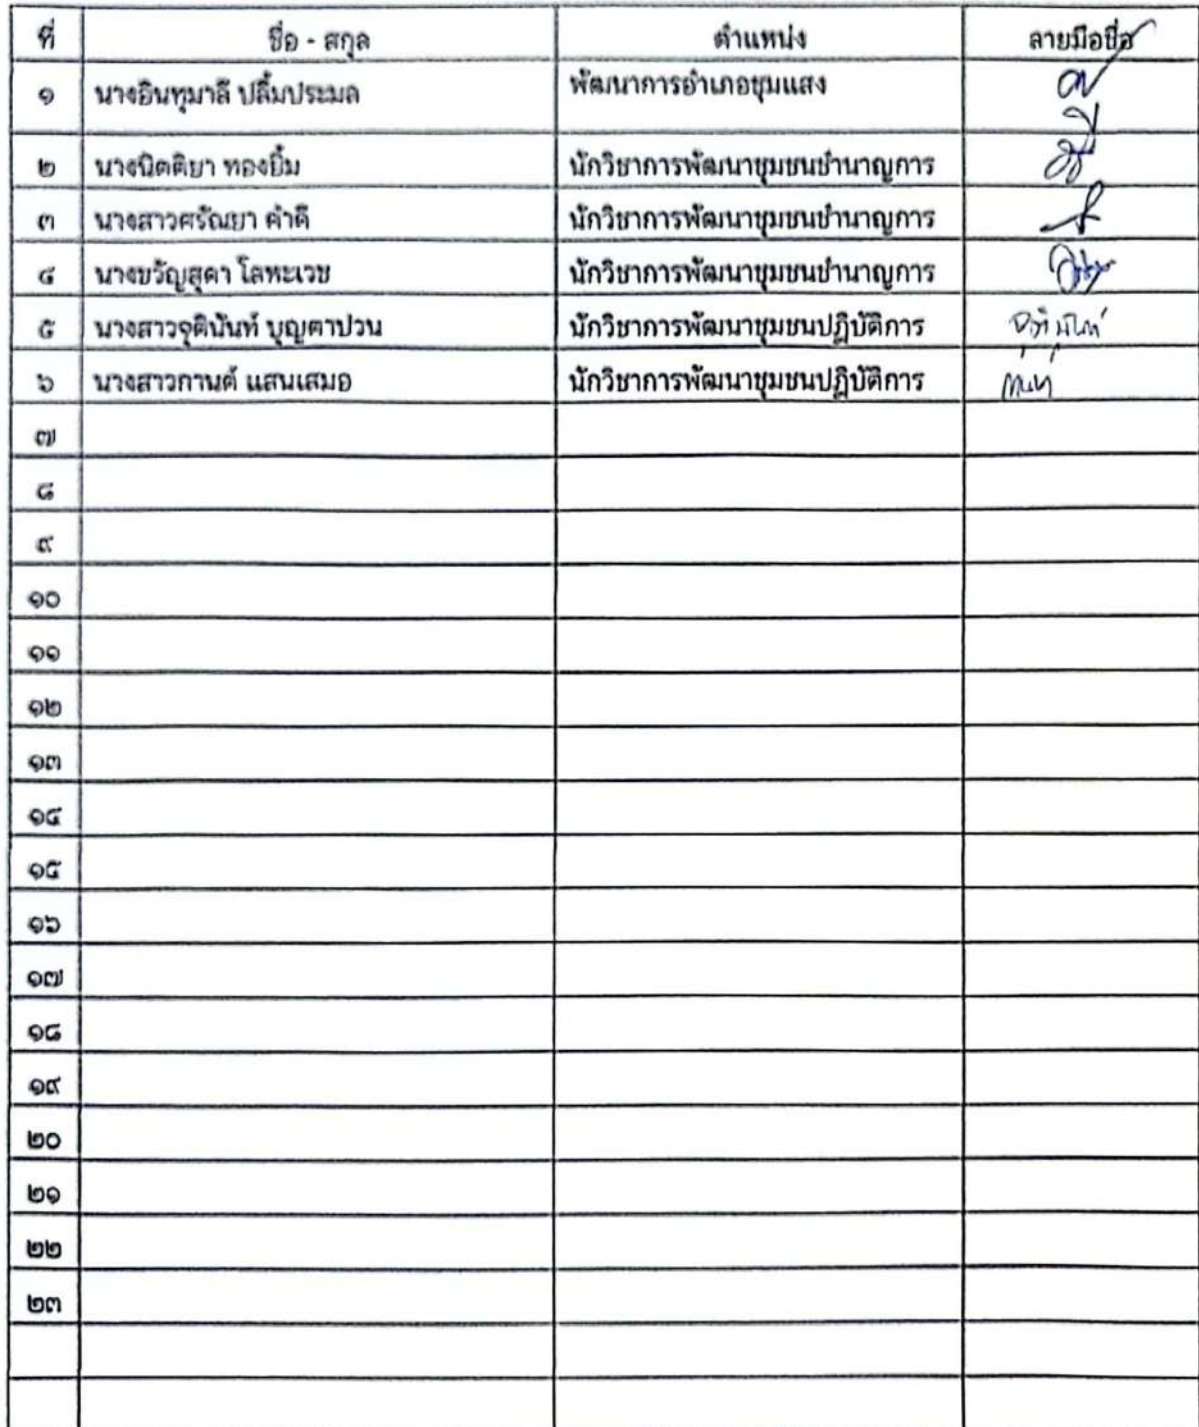 ที่ ชื่อ - สกุล ตำแหน่ง ลายมือชื่อ
๑ นางอินทุมาลี ปลื้มประมล พัฒนาการอำเภอชุมแสง
๒ นางนิตติยา ทองยิ้ม นักวิชาการพัฒนาชุมชนชำนาญการ
๓ นางสาวศรัณยา คำดี นักวิชาการพัฒนาชุมชนชำนาญการ
๔ นางขวัญสุดา โลหะเวช นักวิชาการพัฒนาชุมชนชำนาญการ
๕ นางสาวจุตินันท์ บุญตาปวน นักวิชาการพัฒนาชุมชนปฏิบัติการ จุตินันท์
๖ นางสาวกานต์ แสนเสมอ นักวิชาการพัฒนาชุมชนปฏิบัติการ
๗
๘
๙
๑๐
๑๑
๑๒
๑๓
๑๔
๑๕
๑๖
๑๗
๑๘
๑๙
๒๐
๒๑
๒๒
๒๓